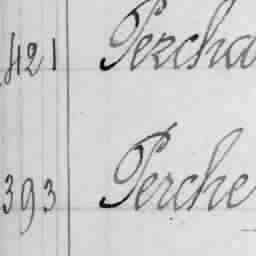 421 Pezcha
393 Perche